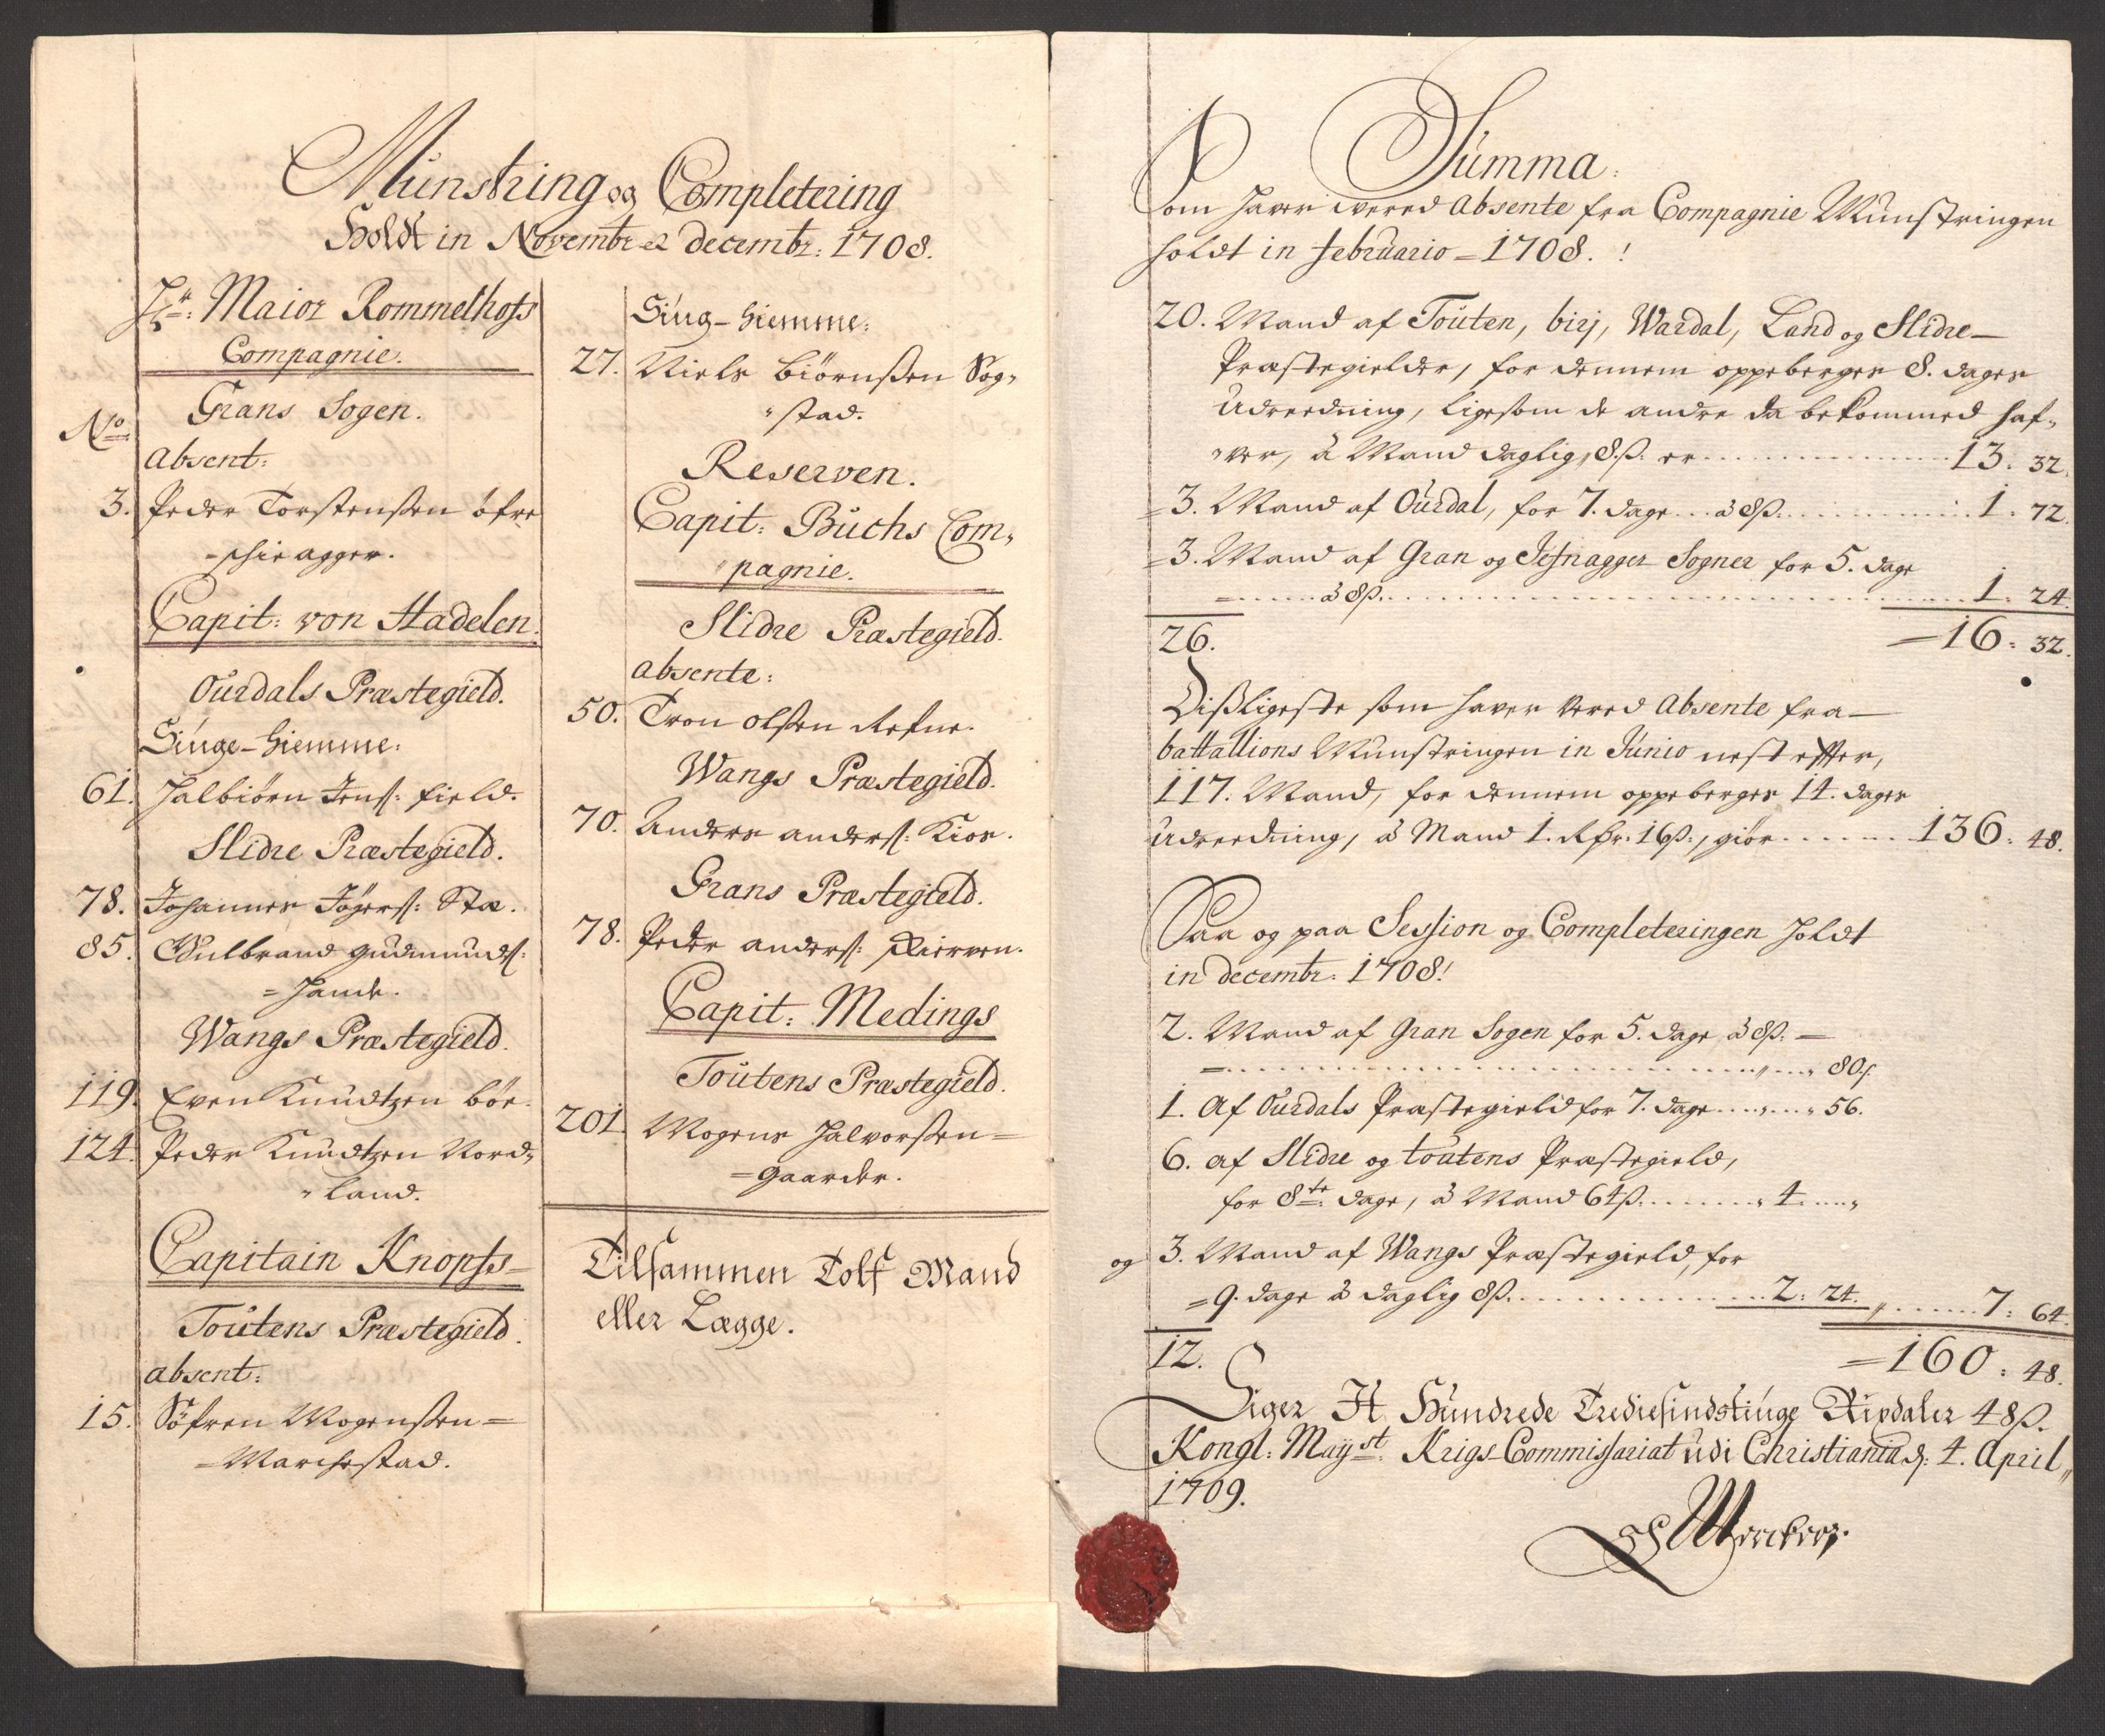 Münstring og Completering
Holdt in Novembr et decembr: 1708.
Hr: Maior Rommelhofs
Compagnie.
Grans Sogen.
No
absent:
3. Peder Torstensen öfre
Capit: von Stadelen.
Ourdals Præstegield.
Siuge-hiemme:
61. Halbiørn Jenß: field.
Slidre Præstegield.
78. Johannes
85. Gulbrand gudmundß:
Wangs Præstegield.
119. Even Knudtzen böe.
124. Peder Knudtzen Nord=
land.
Capitain Knopfs
Toutens Præstegield.
absent:
15. Söfren Mogensen=
Siug-hiemme:
27. Niels Biørnsen Sog=
stad.
Reserven.
Capit: Büchs Com=
pagnie.
Slidre Præstegield.
absente:
50. Tron olsen
Wangs Præstegield.
70. Anders anderß:
Grans Præstegield.
78. Peder anderß:
Capit: Medings
Toutens Præstegield.
201. Mogens Halvorsen=
=gaarder.
Tilsammen Tolf Mand
eller Lægge.
Summa:
Som haver wered Absente fra Compagnie Munstringen
holdt in februario = 1708.!
20. Mand af Touten, birj, Wardal, Land og Slidre
Præstegielder, for dennem oppeberges 8. dages
Udreedning, ligesom de andre da bekommed haf=
ver, à Mand daglig, 8ß. er 13. 32.
3. Mand af Ourdal, for 7. dage à 8ß. 1. 72.
3. Mand af Gran og Jefnagger Sogner for 5. dage
à 8ß. 1. 24.
26. =16: 32.
Dißligeste som haver vered Absente fra
battallions Munstringen in Junio nest efter,
117. Mand, for dennem oppeberges 14. dages
Udreedning, à Mand 1. Rdr. 16ß., giör 136: 48.
Saa og paa Session og Completeringen holdt
in decembr: 1708!
2. Mand af Gran Sogen for 5. dage à 8ß.
80ß
1. Af Ourdals Præstegield for 7. dage 56.
6. af Slidre og toutens Præstegield,
for 8te dage, à Mand 64ß. 4
og 3. Mand af Wangs Præstegield, for
=9. dage à daglig 8ß. 2: 24. 7: 64.
12. =160: 48.
Siger Et Hundrede Trediesindstiuge Rixdaler 48ß.
Kongl: Mayst: Krigs-Commissariat udi Christiania d: 4. April
1709.